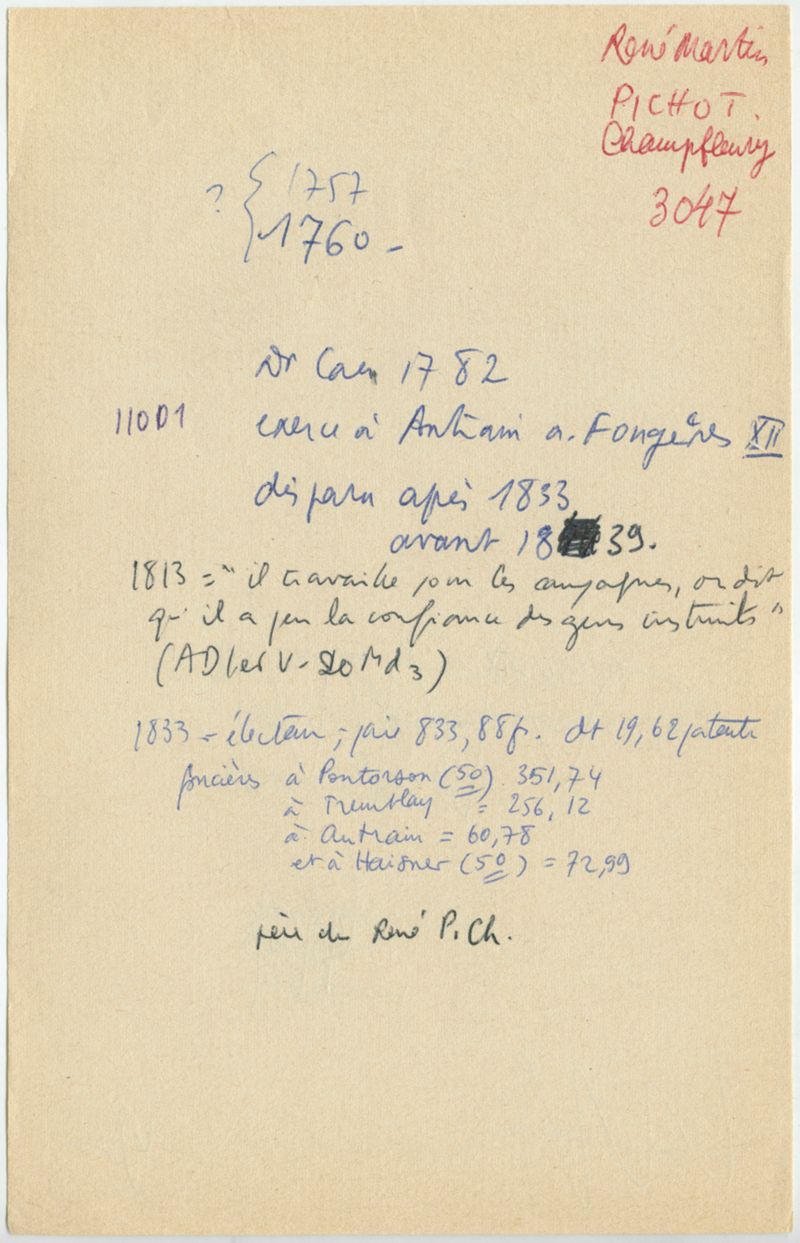 René Martin
PICHOT.
Champfleury
3047
? { 1757
1760 -
Dr Caen 1782
110D1
exerce à Antrain a. Fougères XII
disparu après 1833
avant 18 39.
1813 = "il travaille pour les campagnes, on dit
qu'il a peu la confiance des gens instruits"
(AD V-20Md3)
1833 - électeur ; paie 833,88f. dt 19,62 patente
foncières à Pontorson (50) 351,74
à Tremblay = 256,12
à Antrain = 60,78
et à (50) = 72,99
père de René P. Ch.